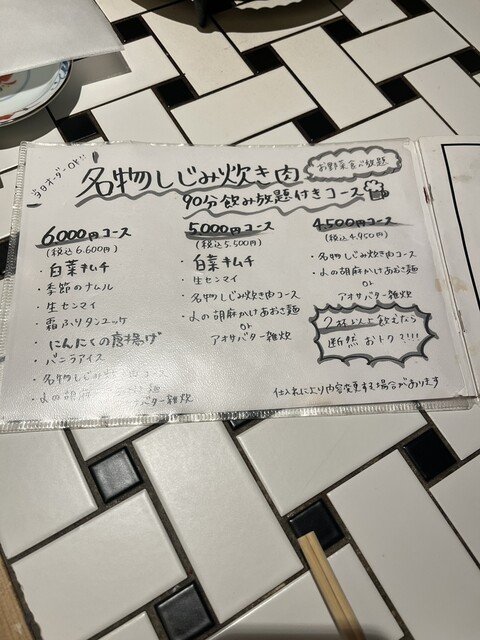 当日オーダーOK!!
名物しじみ炊き肉
お野菜食べ放題
90分飲み放題付きコース
6,000円コース
(税込6,600円)
・白菜キムチ
・季節のナムル
・生センマイ
・霜ふりタンユッケ
・にんにくの唐揚げ
・バニラアイス
・名物しじみ炊き肉コース
バター雑炊
5,000円コース
(税込5,500円)
・白菜キムチ
・生センマイ
・名物しじみ炊き肉コース
・〆の胡麻かけあおさ麺
or
アオサバター雑炊
4,500円コース
(税込4,950円)
・名物しじみ炊き肉コース
・〆の胡麻かけあおさ麺
or
アオサバター雑炊
2杯以上飲むなら
断然おトク?!!!
仕入れにより内容変更する場合があります